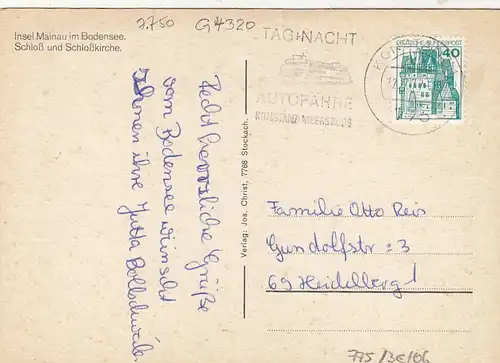 7.750 G4320
Insel Mainau im Bodensee.
Schloß und Schloßkirche.
TAG+NACHT
AUTOFÄHRE
KONSTANZ-MEERSBURG
DEUTSCHE BUNDESPOST
40
Recht herrzliche Grüße
vom Bodensee wünscht
Ihnen ihre Jutta
Verlag: Jos. Christ, 7768 Stockach.
Familie Otto Reis
Gundolfstr. 3
69 Heidelberg 1
775/BE/06